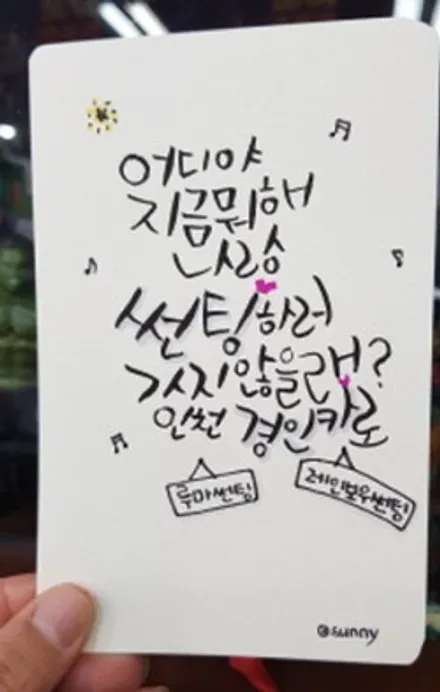 어디야
지금뭐해
나랑
썬팅하러
가지않을래?
인천 경인카로
루마썬팅
레인보우썬팅
@sunny